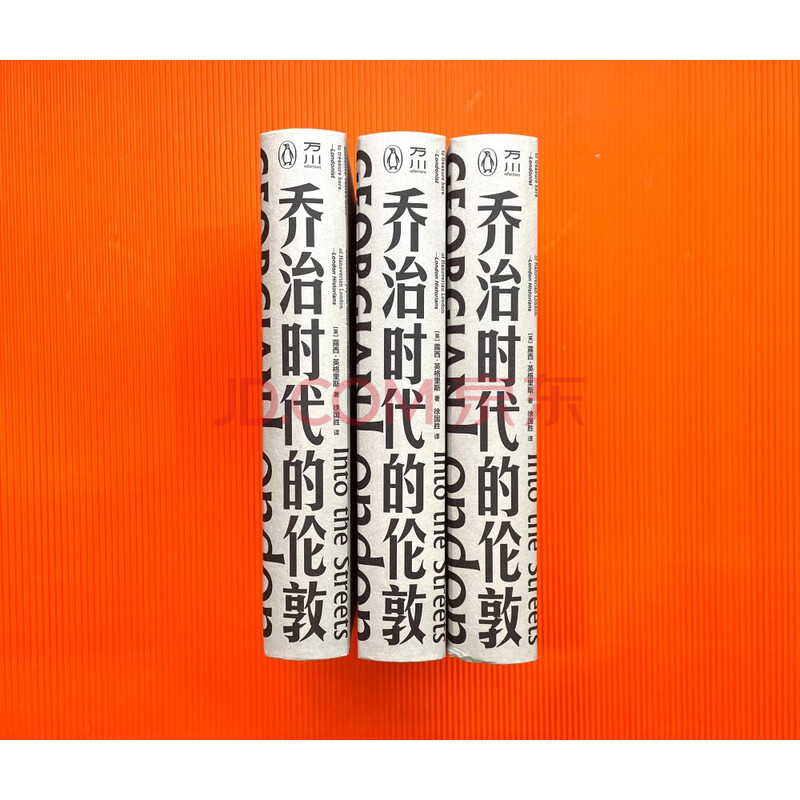 万川
reflections
乔治时代的伦敦
[英] 露西·英格里斯 著 徐国胜 译
GEORGIAN London
Into the Streets
to treasure here.
—Londonist
of Hanoverian London
—London Historians
万川
reflections
乔治时代的伦敦
[英] 露西·英格里斯 著 徐国胜 译
GEORGIAN London
Into the Streets
to treasure here.
—Londonist
of Hanoverian London
—London Historians
万川
reflections
乔治时代的伦敦
[英] 露西·英格里斯 著 徐国胜 译
GEORGIAN London
Into the Streets
to treasure here.
—Londonist
of Hanoverian London
—London Historians
JD.COM 京东